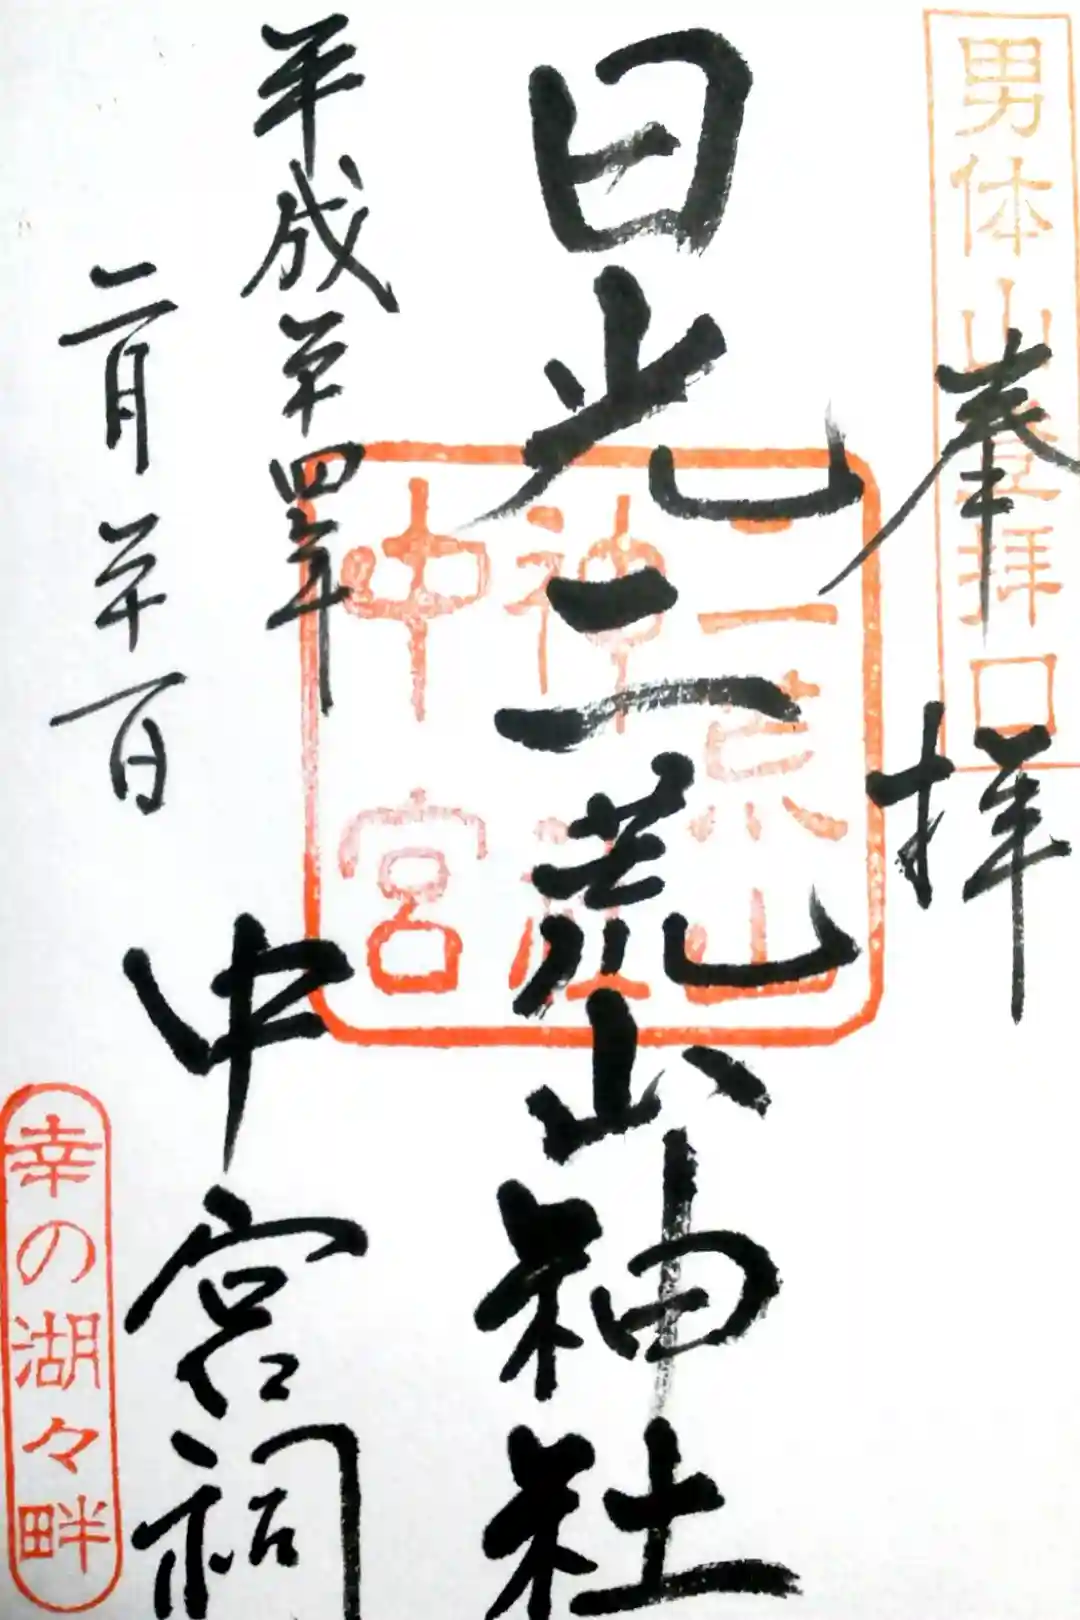 男体山登拝口
奉拝
日光二荒山神社
二荒山
神社
中宮
平成二十四年
二月二十一日
中宮祠
幸の湖々畔